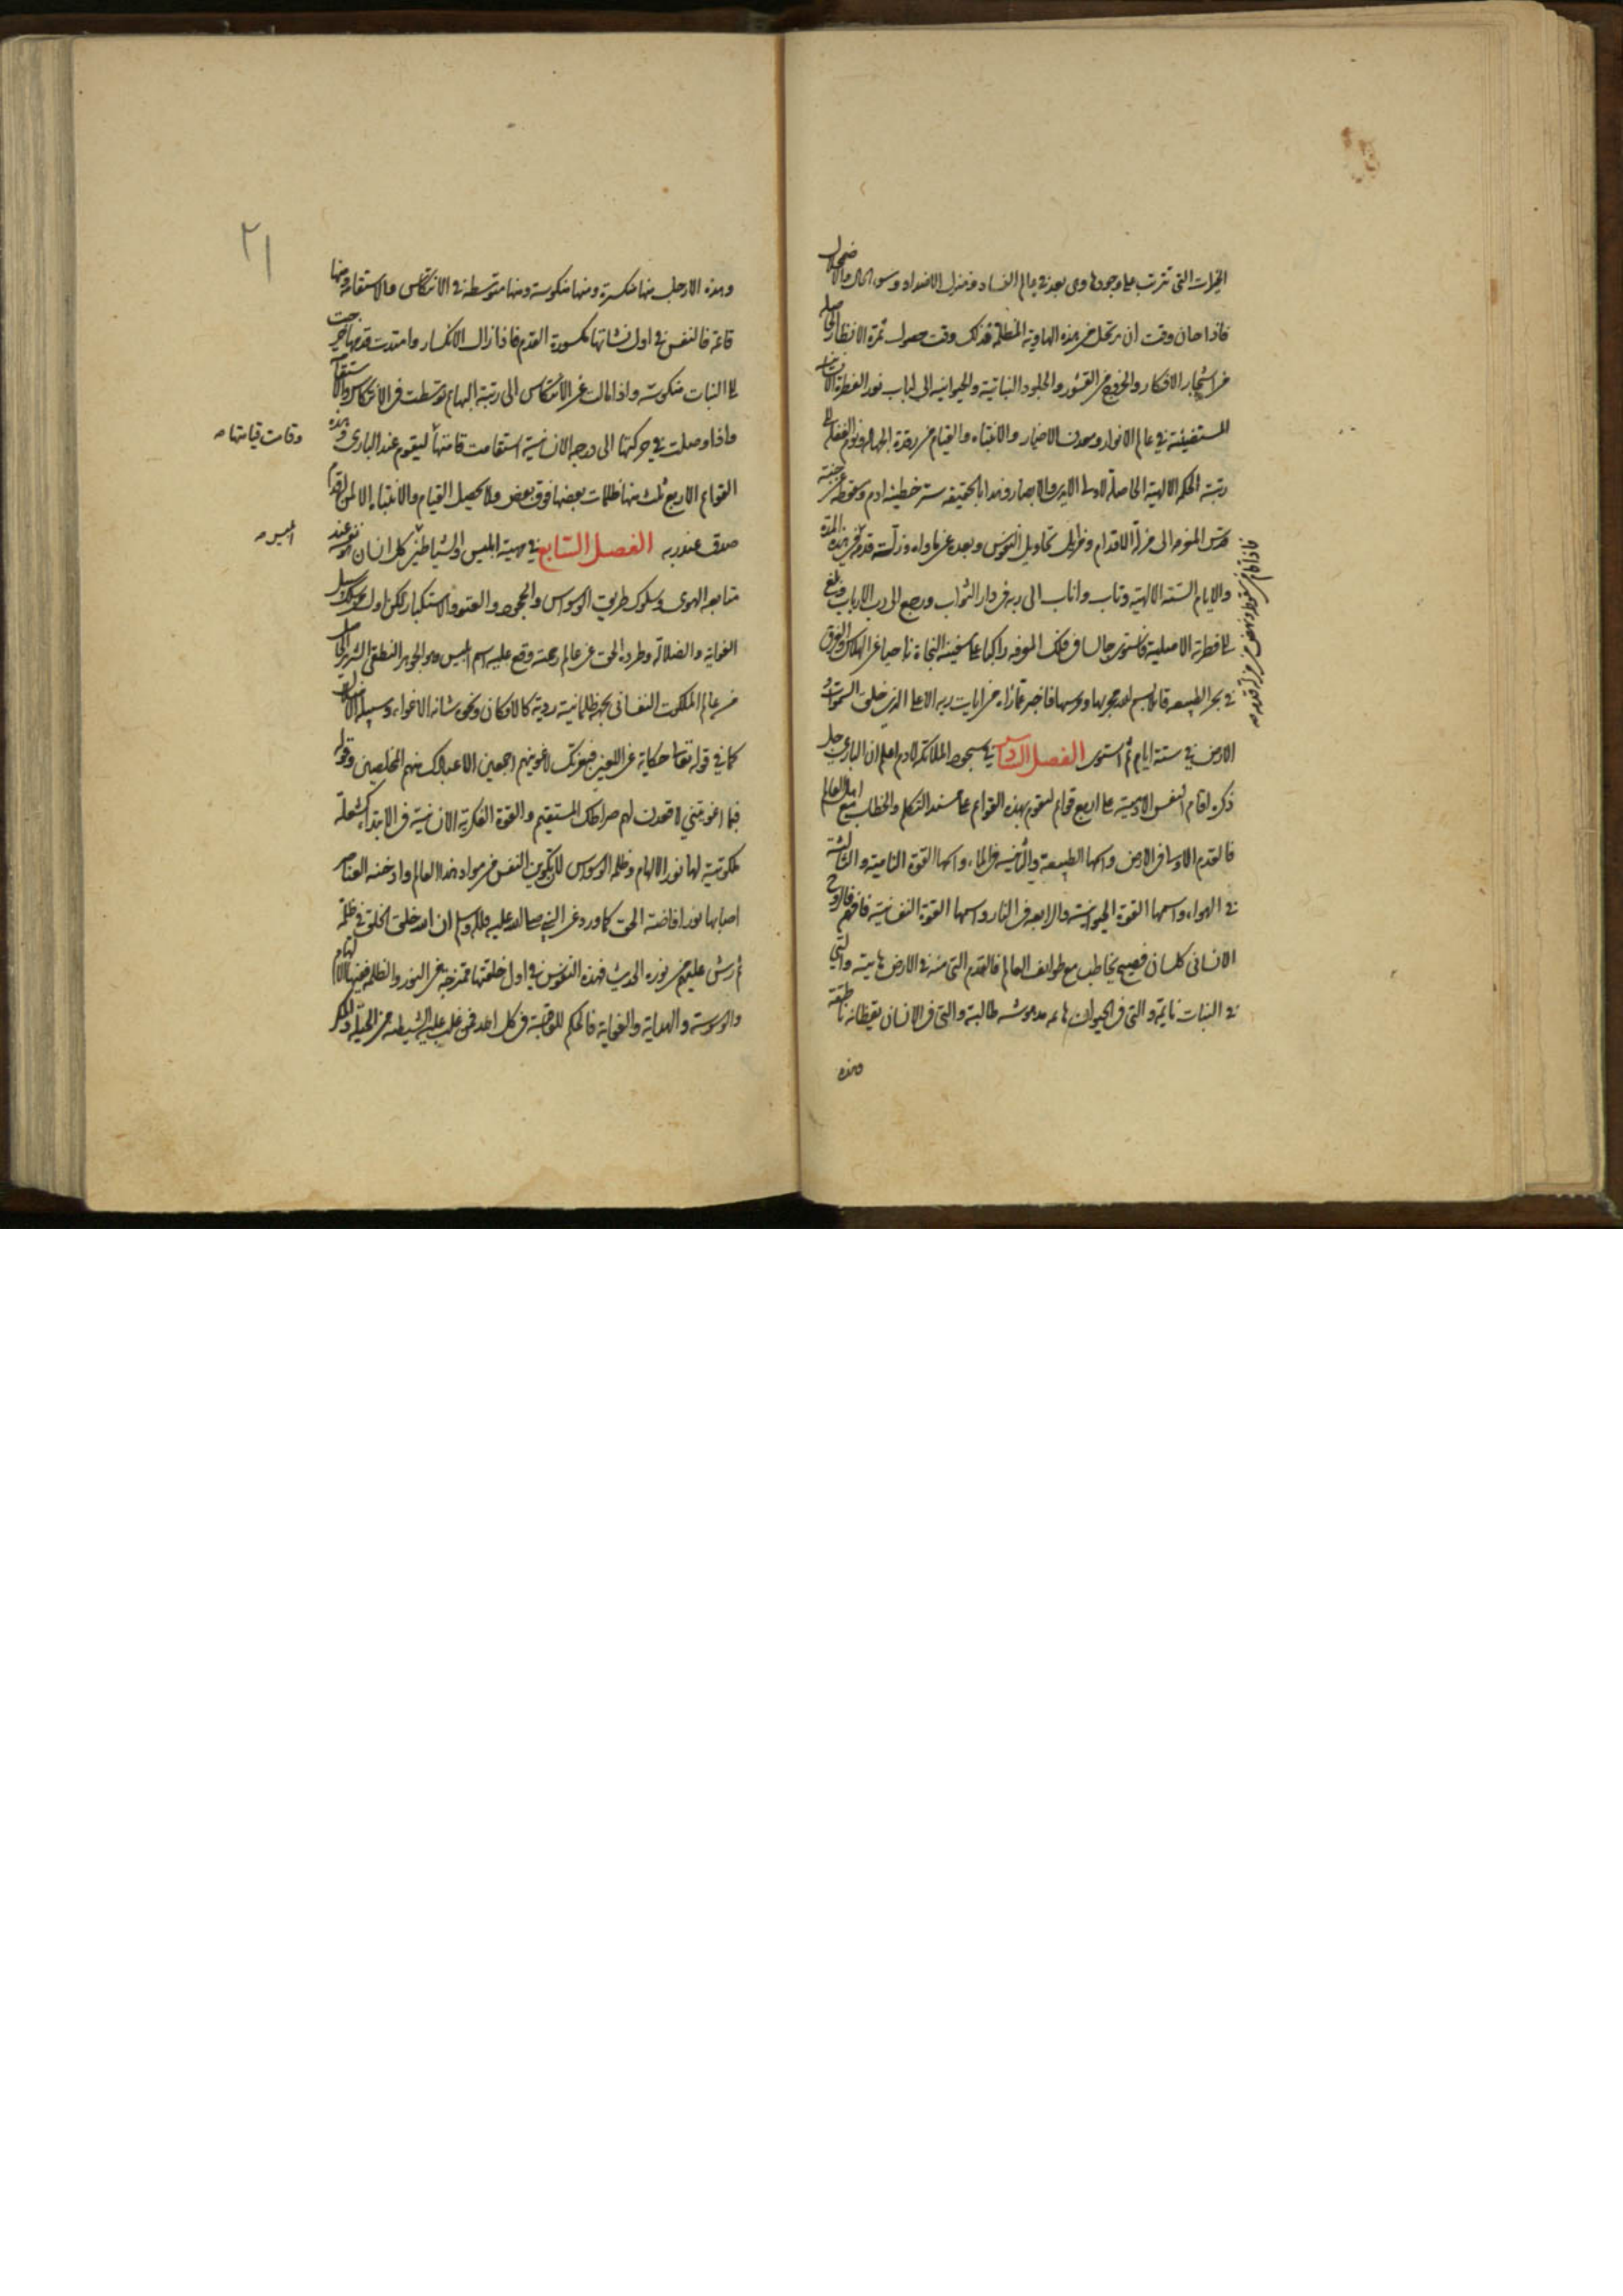 الخيرات التى تترتب على وجودها وهى بعد فى عالم الفساد ومنزل الاضداد وسوء الحال والاضمحلال
فاذا حان وقت ان يرتحل من هذه الهاوية المظلمة فذلك وقت حصول ثمرة الانظار الحاصلة
من اشجار الافكار والخروج من القشور والجلود النباتية والحيوانية الى لباب نور الفطرة الانسانية
المستضيئة فى عالم الانوار ومعدن الاخيار والانتباه والقيام من رقدة الجهالة ونوم الغفلة الى
رتبة الحكمة الالهية الحاصلة لاولى الايدى والابصار وهذا بالحقيقة سر خطيئة ادم وسقوطه من جنة
القدس الى مزلة الاقدام وبعده عن ماواه وزلته قدمه فى هذه المدة
والايام الستة الالهية وتاب واناب الى ربه فى دار الثواب ورجع الى رب الارباب وبلغ
الى فطرته الاصلية فاستوى جالسا فى فلك المعرفة راكبا على سفينة النجاة ناجيا عن الهلاك والغرق
فى بحر الطبيعة قائلا بسم الله مجريها ومرسيها فاخبر عما راه من ايات ربه الاعلى الذى خلق السموات و
الارض فى ستة ايام ثم استوى الفصل السادس فى سجود الملائكة لادم اعلم ان البارى جل
ذكره اقام النفس الادمية على اربع قوائم لتقوم بهذه القوائم على مسند التكلم والخطاب مع اهل العالم
فالقدم الاولى فى الارض واسمها الطبيعة والثانية فى الماء واسمها القوة النامية والثالثة
فى الهواء واسمها القوة الحيوانية والرابعة فى النار واسمها القوة النفسانية فافهم فالروح
الانسانى كلسان فصيح يخاطب مع طوايف العالم فالقدم التى منه فى الارض هابيتة والتى
فى النبات نايمة والتى فى الحيوان هائمة مدهوشة طالبة والتى فى الانسان يقظانة ناطقة
وهذه
فاذا قام من سقوطه ونهض من مزلة قدمه
٢١
وهذه الارجل منها منكسرة ومنها منكوسة ومنها متوسطة فى الانتكاس والاستقامة ومنها
قائمة فالنفس فى اول نشاتها مكسورة القدم فاذا زال الانكسار وامتدت قدمها خرجت
الى النبات منكوسة واذا مالت عن الانتكاس الى رتبة البهائم توسطت فى الانتكاس والاستقامة
واذا وصلت فى حركتها الى درجة الانسانية استقامت قامتها ليقوم عند البارى وهذه
وقامت قيامتها
القوائم الاربع ثلث منها ظلمات بعضها فوق بعض ولا يحصل القيام والانتباه الا لمن له قدم
صدق عند ربه الفصل السابع فى مهية ابليس والشياطين كل انسان هو عند
ابليس
متابعة الهوى وسلوك طريق الوسواس والجحود والعتو والاستكبار لكن اول من سلك سبيل
الغواية والضلالة وطرده الحق عن عالم رحمته وقع عليه اسم ابليس وهو الجوهر النطقى الشرير الحاصل
من عالم الملكوت النفسانى بجهة ظلمانية ردية كالامكان ونحوه شانه الاغواء وسبيله الاضلال
كما فى قوله تعالى حكاية عن اللعين فبعزتك لاغوينهم اجمعين الا عبادك منهم المخلصين وقوله
فبما اغويتنى لاقعدن لهم صراطك المستقيم والقوة الفكرية الانسانية فى الابتداء كشعلة
ملكوتية لها نور الالهام وظلمة الوسواس لان تكوين النفس من مواد هذا العالم وادخنة العناصر
اصابها نور افاضة الحق كما ورد عن النبى صلى الله عليه واله وسلم ان الله خلق الخلق فى ظلمة
ثم رش عليهم من نوره الحديث فهذه النفوس فى اول خلقتها ممتزجة من النور والظلمة ففيها الالهام
والوسوسة والهداية والغواية فالحكم للغالبة فى كل احد فمن غلب عليه الشيطنة من الحيلة والمكر